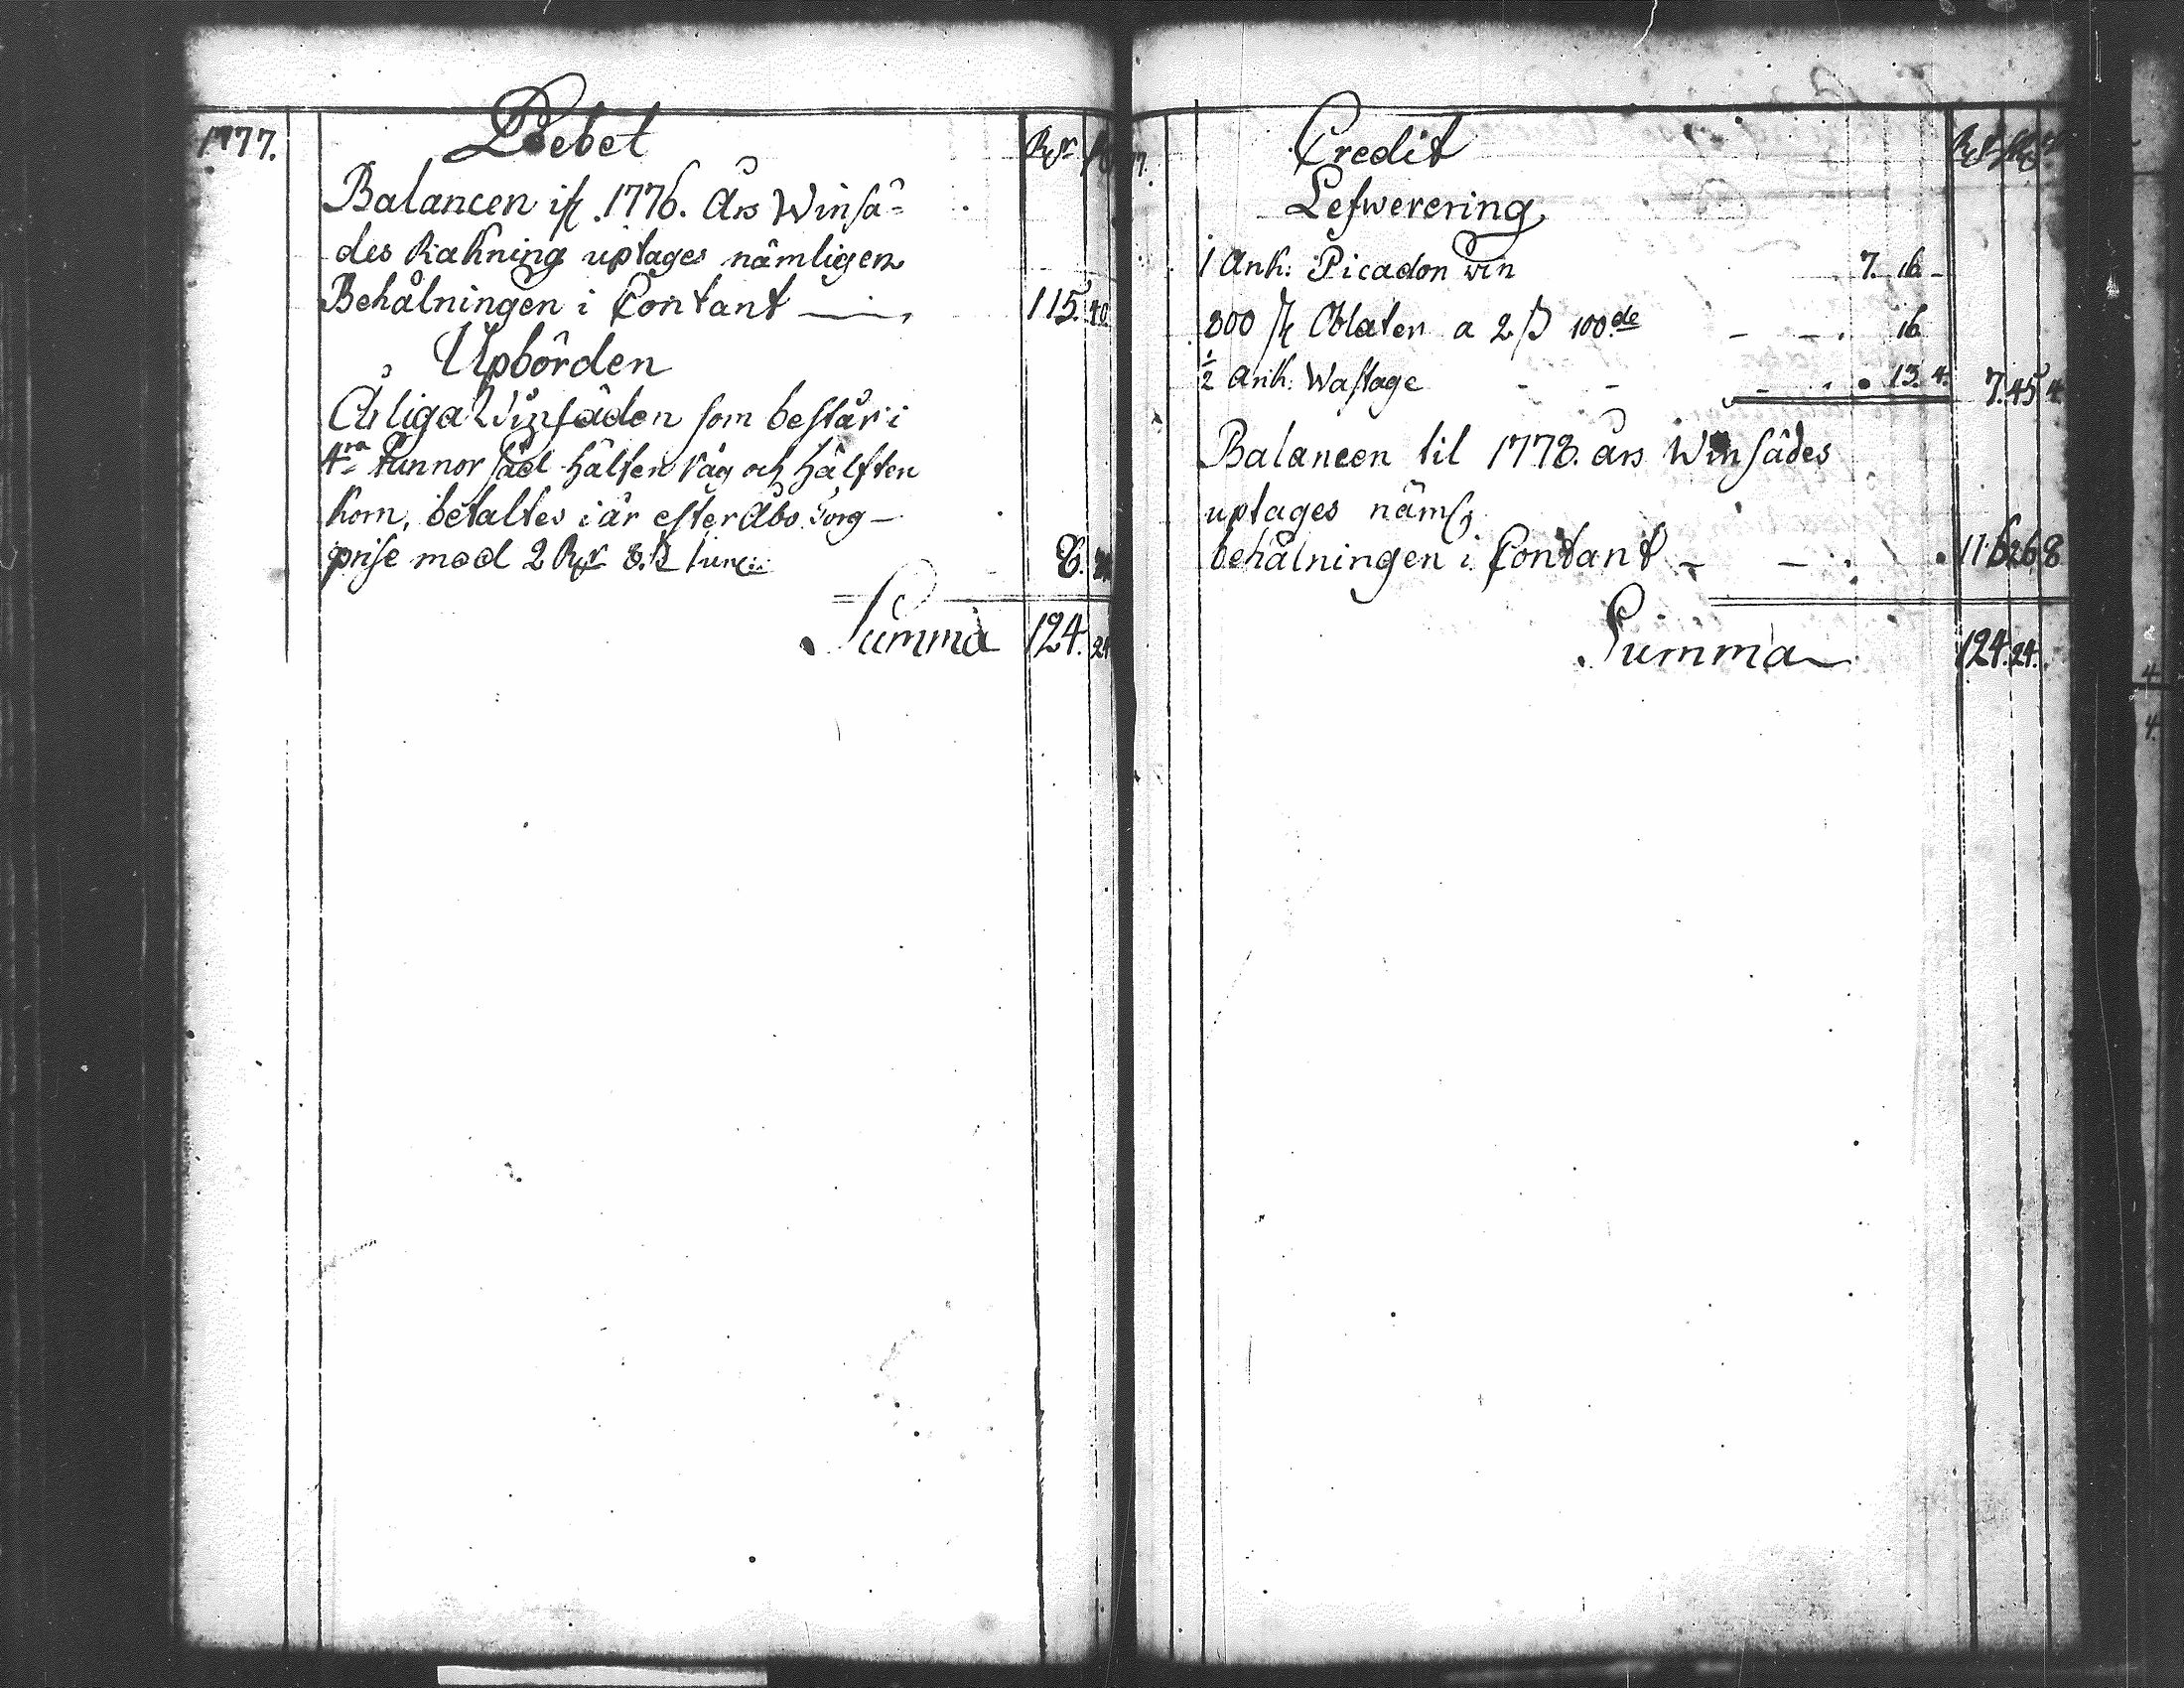 1777.
Debet
Rdr
Balancen ifr. 1776. Års Winsä=
des Räkning uptages nämligen
Behålningen i Contant 115. 40.
Upbörden
Åliga Winsäden som består i
4ra Tunnor säd hälften råg och hälften
korn, betaltes i år efter Åbo Torg-
prise med 2 Rdr 8 ß tun: 8.
Summa 124. 24
Credit
Lefwerering
1 Ank: Picadon win 7. 16 -
800 st Oblater a 2 ß 100de - - . 16
½ ank: Wastage - - - . 13. 4. 7. 45 4
Balancen til 1778. års Winsädes
uptages näml
behålningen i Contant - - . 116 26 8
Summa 124. 24.
4
4.